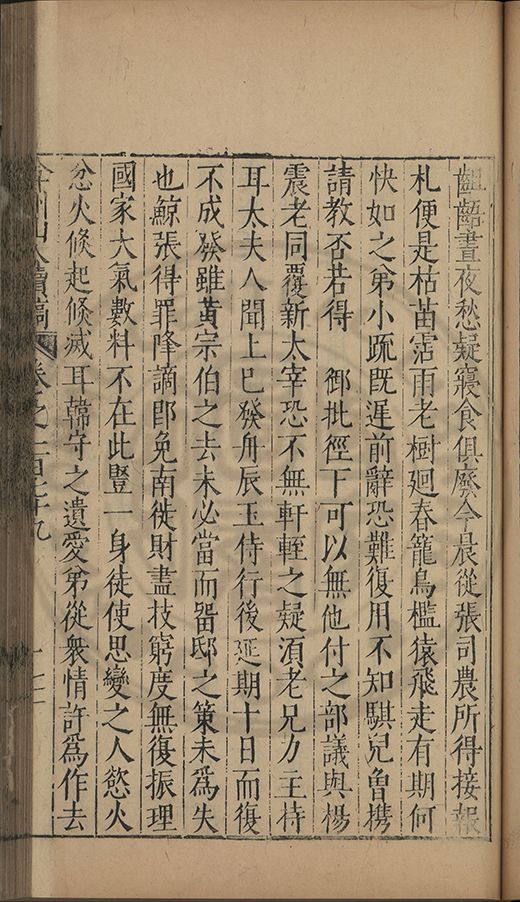 齟齬晝夜愁疑寢食俱廢今晨從張司農所得接報
札便是枯苗霑雨老樹廻春籠鳥檻猿飛走有期何
快如之弟小疏旣遲前辭恐難復用不知騏兒曾携
請教否若得 御批徑下可以無他付之部議與楊
震老同覆新太宰恐不無軒輊之疑湏老兄力主持
耳太夫人聞上巳發舟辰玉侍行後延期十日而復
不成發雖黃宗伯之去未必當而畱邸之策未爲失
也鯨張得罪降謫卽免南徙財盡技窮度無復振理
國家大氣數料不在此豎一身徒使思變之人慾火
忿火倐起倐滅耳韓守之遺愛弟從衆情許爲作去
弇州山人續稿 卷之一百七十九